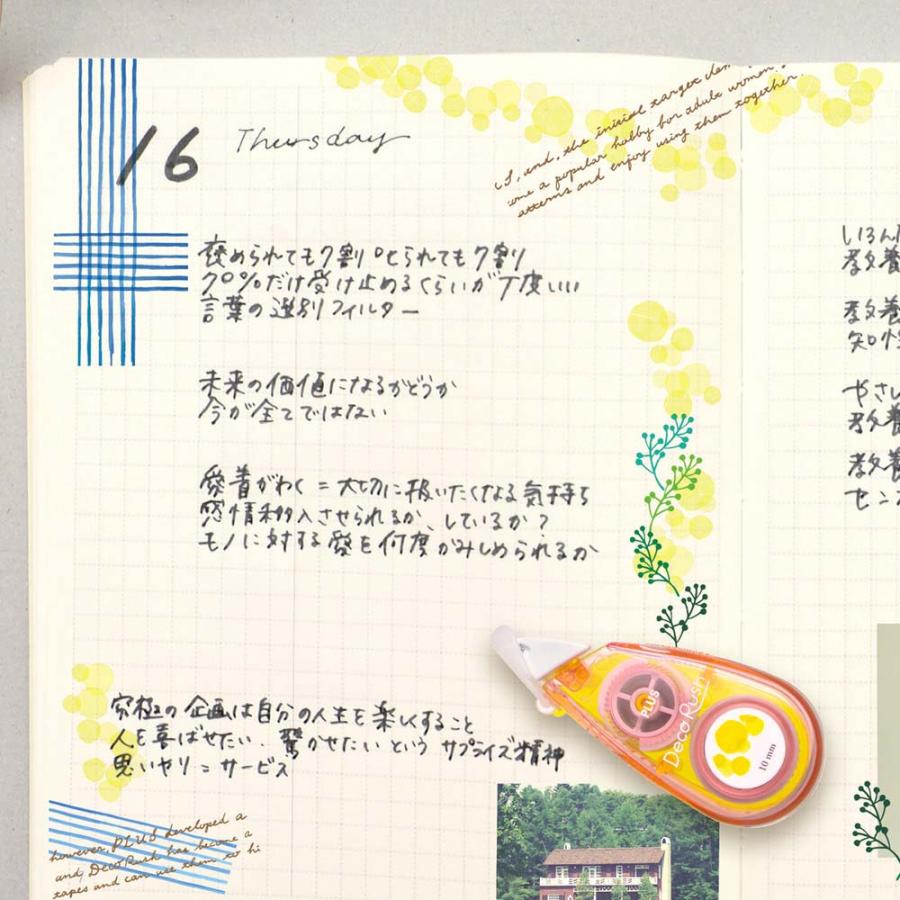 16 Thursday
is, and, the initial target dem
ome a popular hobby for adult women.
atterns and enjoy using them together.
褒められても7割 叱られても7割り
70%だけ受け止めるくらいが丁度いい
言葉の選別フィルター
未来の価値になるかどうか
今が全てではない
愛着がわく=大切に扱いたくなる気持ち
感情移入させられるか、しているか?
モノに対する愛を何度かみしめられるか
究極の企画は自分の人生を楽しくすること
人を喜ばせたい、驚かせたいという サプライズ精神
思いやり=サービス
however, PLUS developed a
and, Deco Rush has become a
tapes and can use them to hi
PLUS
Deco Rush
10 mm
いろん
教養
教養
知性
やさし
教養
教養
センス